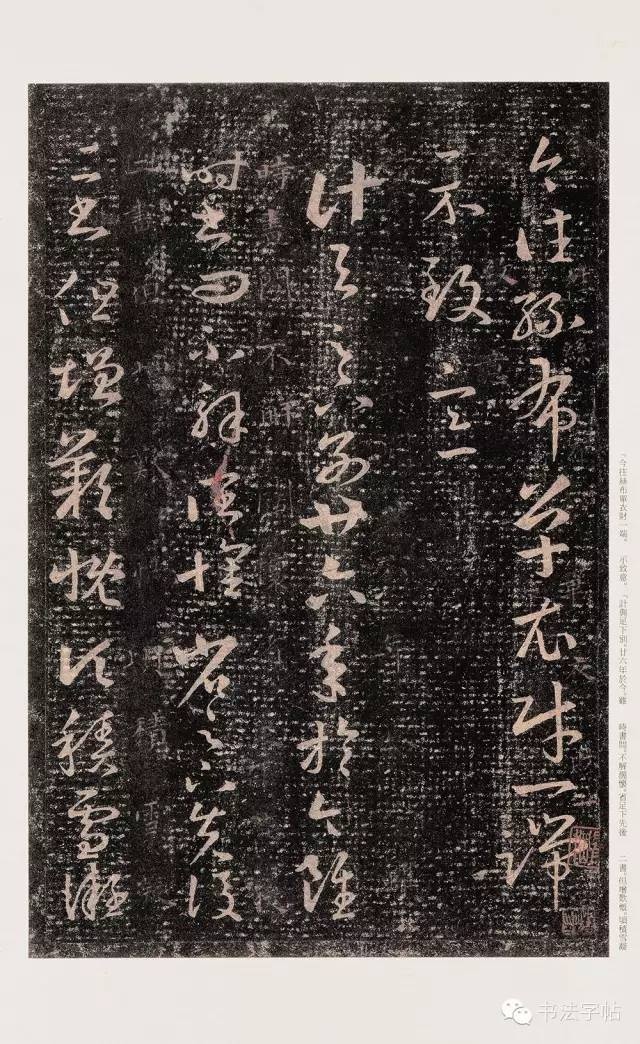 今往絲布單衣財一端
示致意
計與足下別廿六年於今雖
時書問不解闊懷省足下先後
二書但增歎慨頃積雪凝
「今往絲布單衣財一端。 示致意。「計與足下別,廿六年於今。雖 時書問,不解闊懷。省足下先後 二書,但增歎慨。頃積雪凝
书法字帖